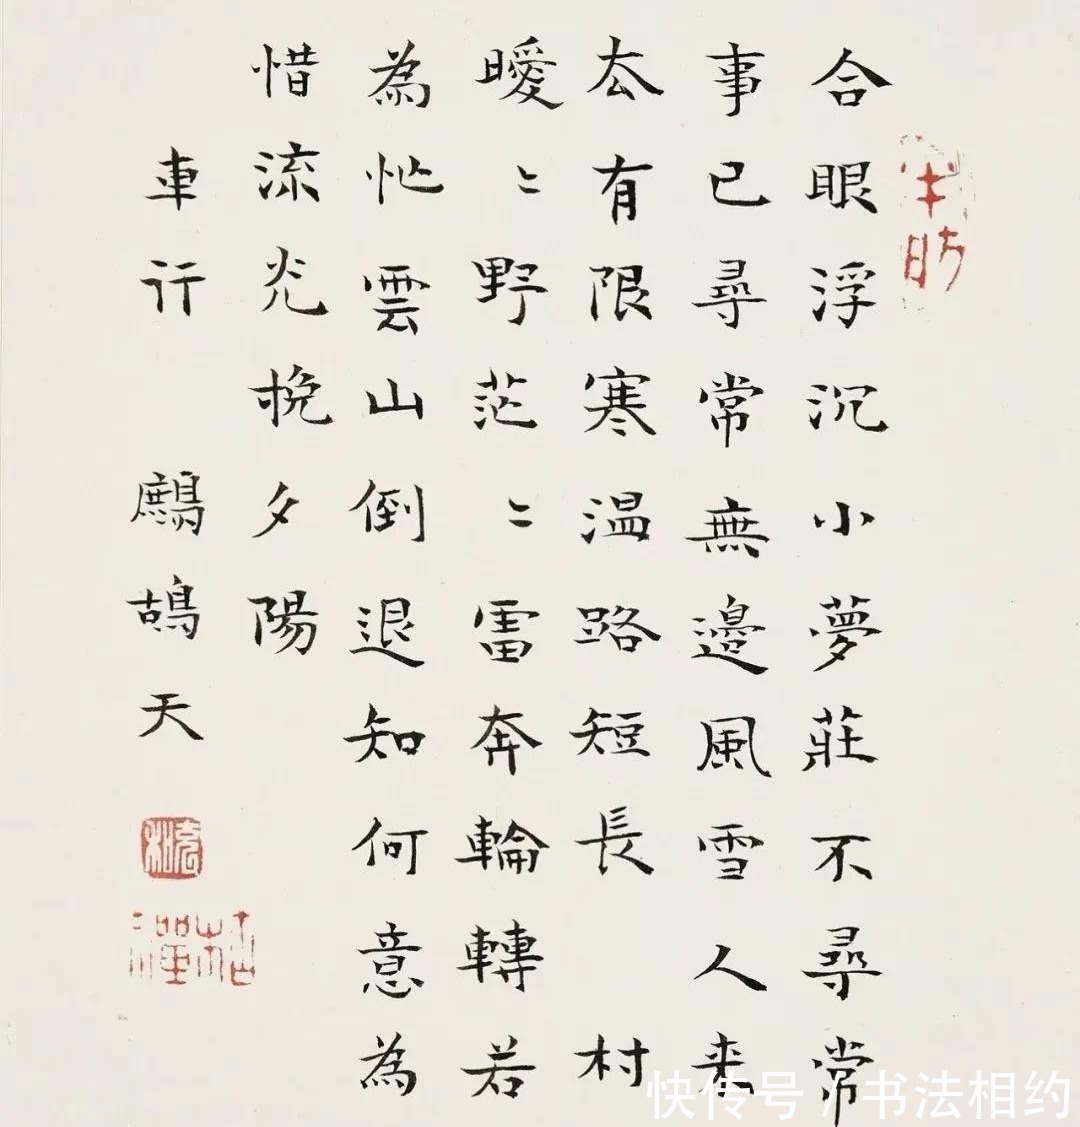 合眼浮沉小夢莊不尋常
事已尋常無邊風雪人來
厺有限寒温路短長 村
曖〻野茫〻雷奔輪轉若
為忙雲山倒退知何意為
惜流光挽夕陽
車行 鷓鴣天
快传号 / 书法相约